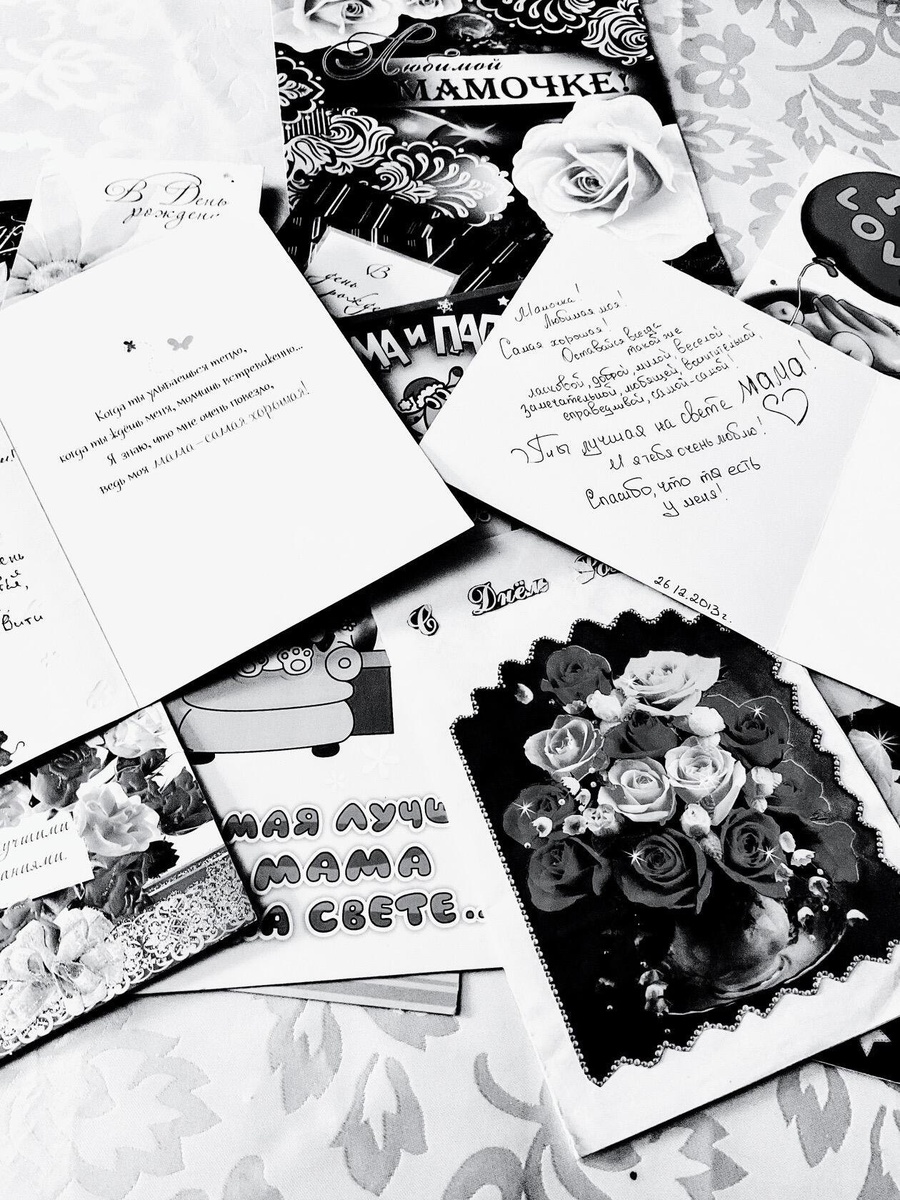 Любимой
МАМОЧКЕ!
В День
рожден
В
день
рожде
МА И ПАП
L
LOV
Мамочка!
Любимая моя!
Самая хорошая!
Оставайся всегда
такой же
ласковой, доброй, милой, веселой,
замечательной, любящей, восхитительной,
справедливой, самой-самой!
Ты лучшая на свете мама!
И я тебя очень люблю!
Спасибо, что ты есть
у меня!
26.12.2013г.
Когда ты улыбаешься тепло,
когда ты ждёшь меня, молчишь встревоженно...
Я знаю, что мне очень повезло,
ведь моя мама – самая хорошая!
ень
вити
С Днём Ро
МАЯ ЛУЧШ
МАМА
А СВЕТЕ...
учшими
аниями.